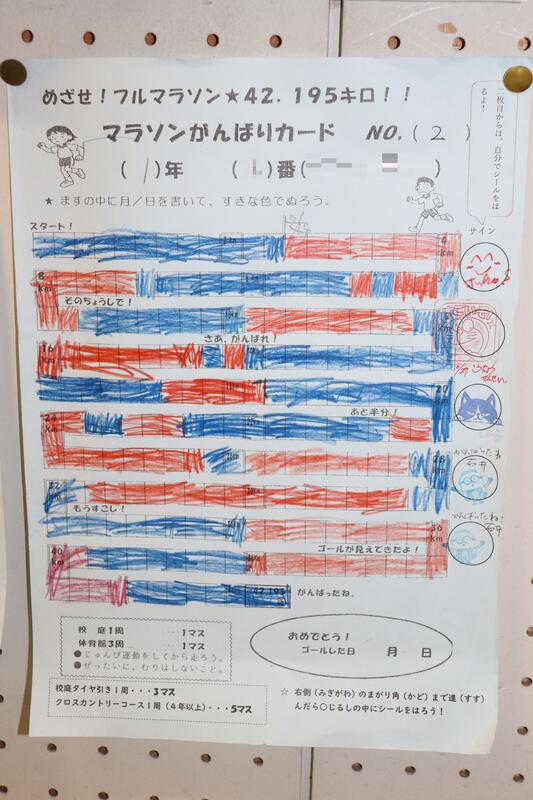 めざせ！フルマラソン★42．195キロ！！
マラソンがんばりカード　NO.（2　）
二枚目からは、自分でシールをは
るよ！
（1）年　（1）番（　　）
★ ますの中に月／日を書いて、すきな色でぬろう。
スタート！
サイン
4
Km
8
Km
そのちょうしで！
さあ、がんばれ！
16
Km
20
Km
あと半分！
24
28
Km
がんばったね
石井
32
Km
もうすこし！
がんばったね！
石井
36
Km
ゴールが見えてきたよ！
40
Km
42.195
がんばったね。
校　庭1周　・・・・1マス
体育館3周　・・・・1マス
●じゅんび運動をしてから走ろう。
●ぜったいに、むりはしないこと。
おめでとう！
ゴールした日　　月　日
校庭タイヤ引き1周・・・3マス
クロスカントリーコース1周（4年以上）・・・5マス
☆ 右側（みぎがわ）のまがり角（かど）まで進（すす）
んだら〇じるしの中にシールをはろう！